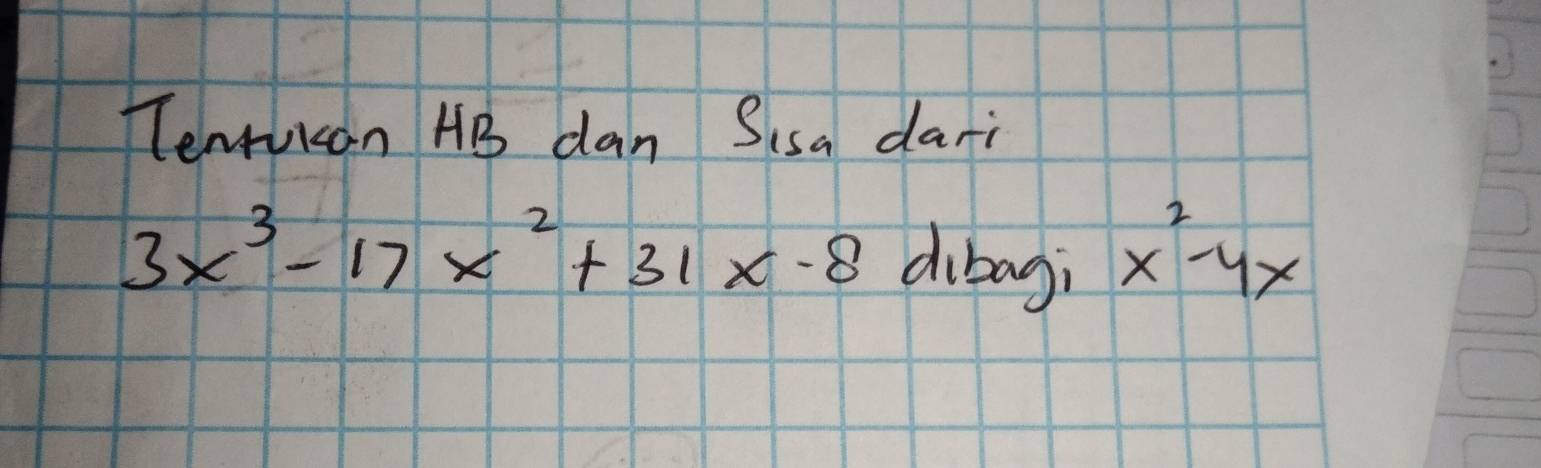 Tentukan HB dan Sisa dari
3x³ - 17x² + 31x - 8 dibagi x² - 4x